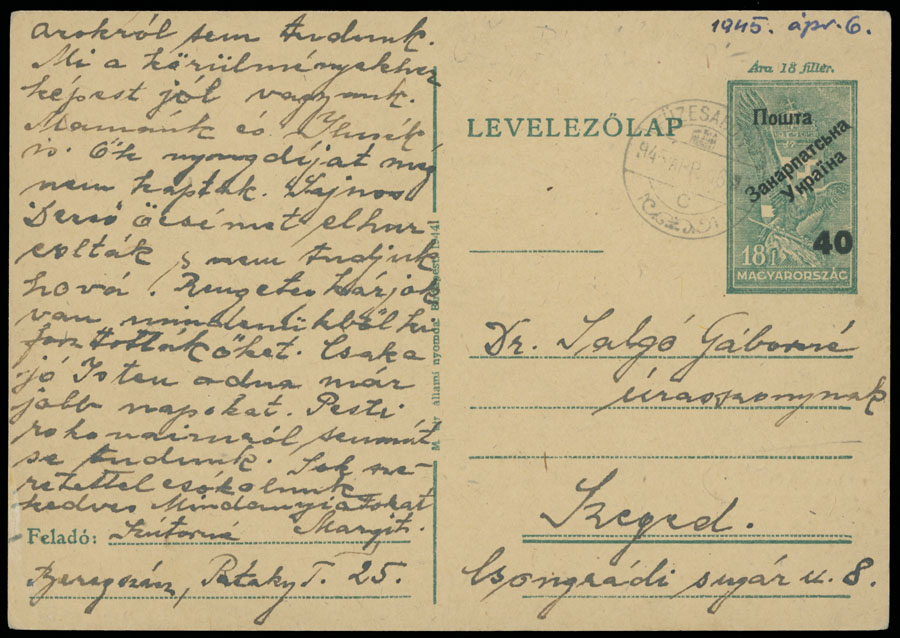 arokról sem tudunk.
Mi a körülményekhez
képest jól vagyunk.
Mamánk és Ilusék
is. Ők nyugdíjat még
nem kaptak. Sajnos
Dezső öcsémet elhur
colták s nem tudjuk
hová. Rengeteg kárjok
van mindenükből ki
forttották őket. Csak a
jó Isten adna már
jobb napokat. Pesti
rokonainkról semmit
se tudunk. Sok sze-
retettel csókolunk
kedves Mindanyiatokat
Feladó: Margit.
Beregszász, Pataky T. 25.
M. kir. állami nyomda, Budapest. 1944.
1945. ápr. 6.
Ára 18 fillér.
LEVELEZŐLAP
945 ÁPR
C
Пошта
Закарпатська
Україна
40
18 f
MAGYARORSZÁG
Dr. Salgó Gáborné
úrasszonynak
Szeged.
Csongrádi sugár u. 8.